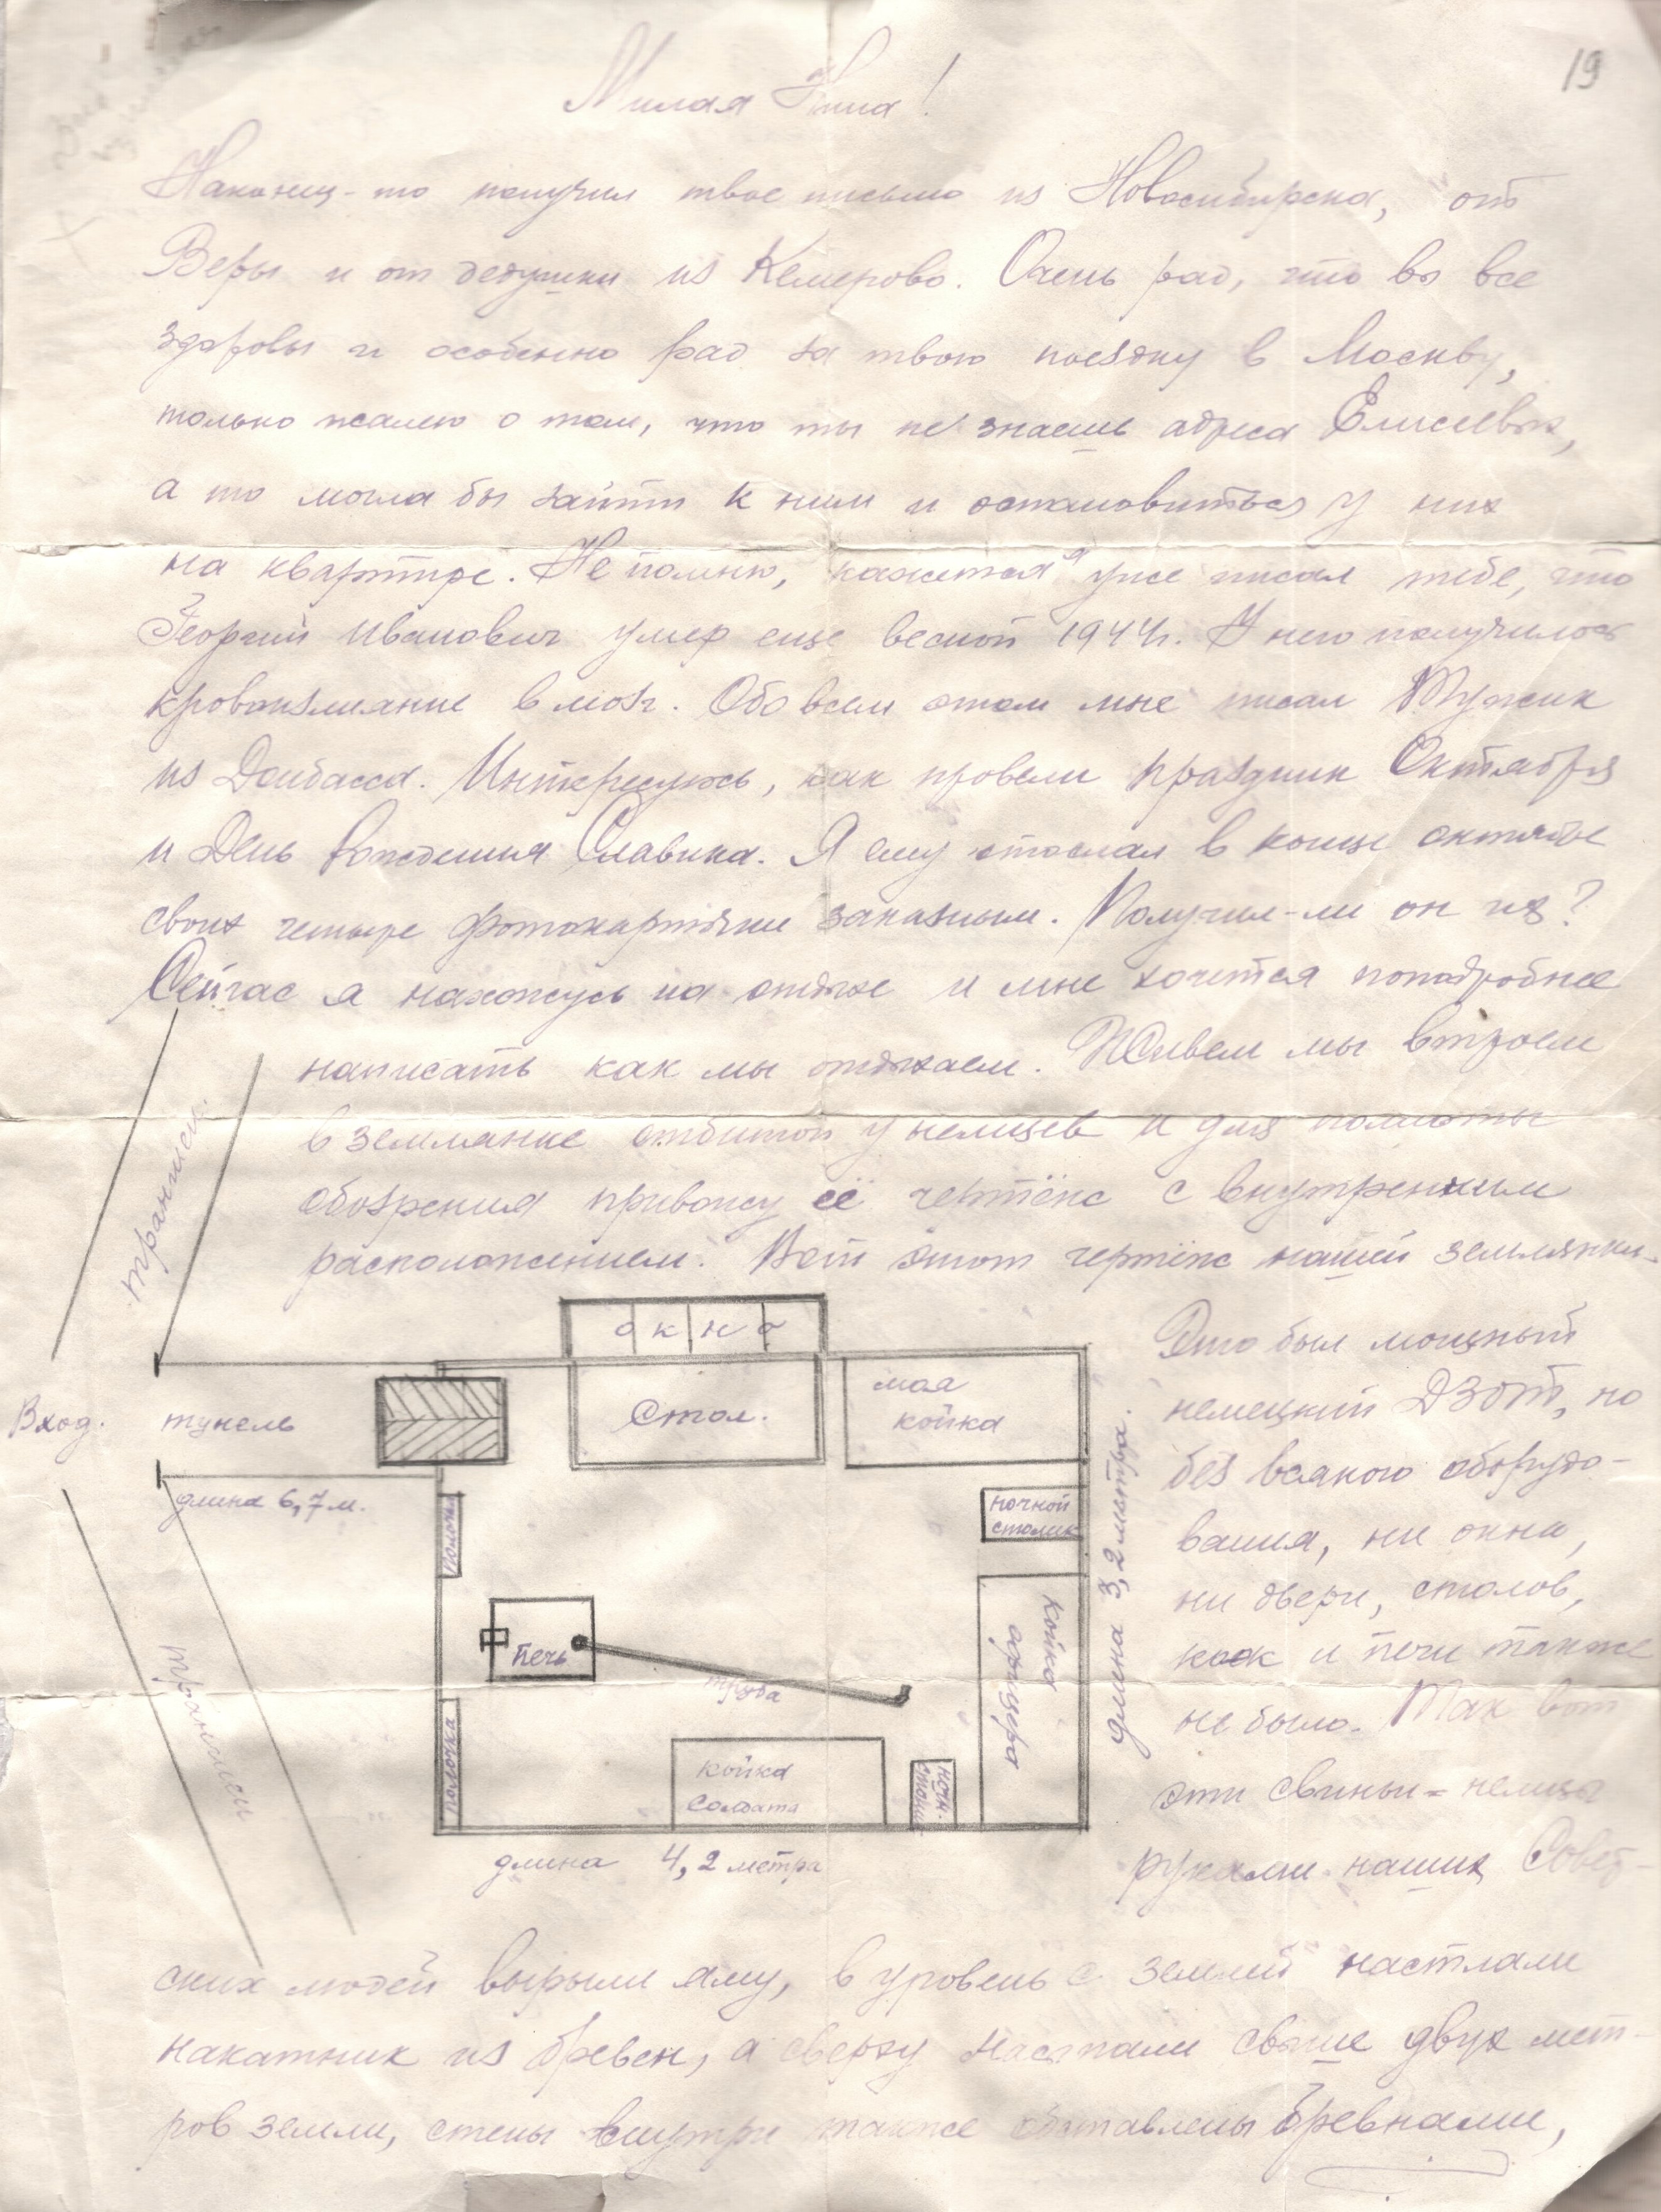 19
Милая Нина!
Наконец-то получил твое письмо из Новосибирска, от
Веры и от дедушки из Кемерово. Очень рад, что вы все
здоровы и особенно рад за твою поездку в Москву,
только жалею о том, что ты не знаешь адреса Елисеевых,
а то могла бы зайти к ним и остановиться у них
на квартире. Не помню, кажется я уже писал тебе, что
Георгий Иванович умер еще весной 1944г. У него получилось
кровоизлияние в мозг. Обо всем этом мне писал
из Донбасса. Интересуюсь, как провели праздник Октября
и День рождения Славика. Я ему отослал в конце октября
своих четыре фотокарточки заказным. Получил-ли он их?
Сейчас я нахожусь на отдыхе и мне хочется поподробнее
написать как мы отдыхаем. Живем мы втроем
в землянке отбитой у немцев и для полноты
обозрения привожу её чертёж с внутренним
расположением. Вот этот чертёж нашей землянки.
траншеи
окно
Вход.
тунель
Стол.
моя
койка
длина 6,7 м.
полочка
ночной
столик
печь
труба
койка
офицера
длина 3,2 метра.
траншеи
полочка
койка
солдата
ночн.
столик
длина 4,2 метра
Это был мощный
немецкий ДЗОТ, но
без всякого оборудо-
вания, ни окна,
ни двери, столов,
как и печи также
не было. Так вот
эти свиньи=немцы
руками наших Совет-
ских людей вырыли яму, в уровень с землей настлали
накатник из бревен, а сверху насыпали свыше двух мет-
ров земли, стены внутри также обставлены бревнами,